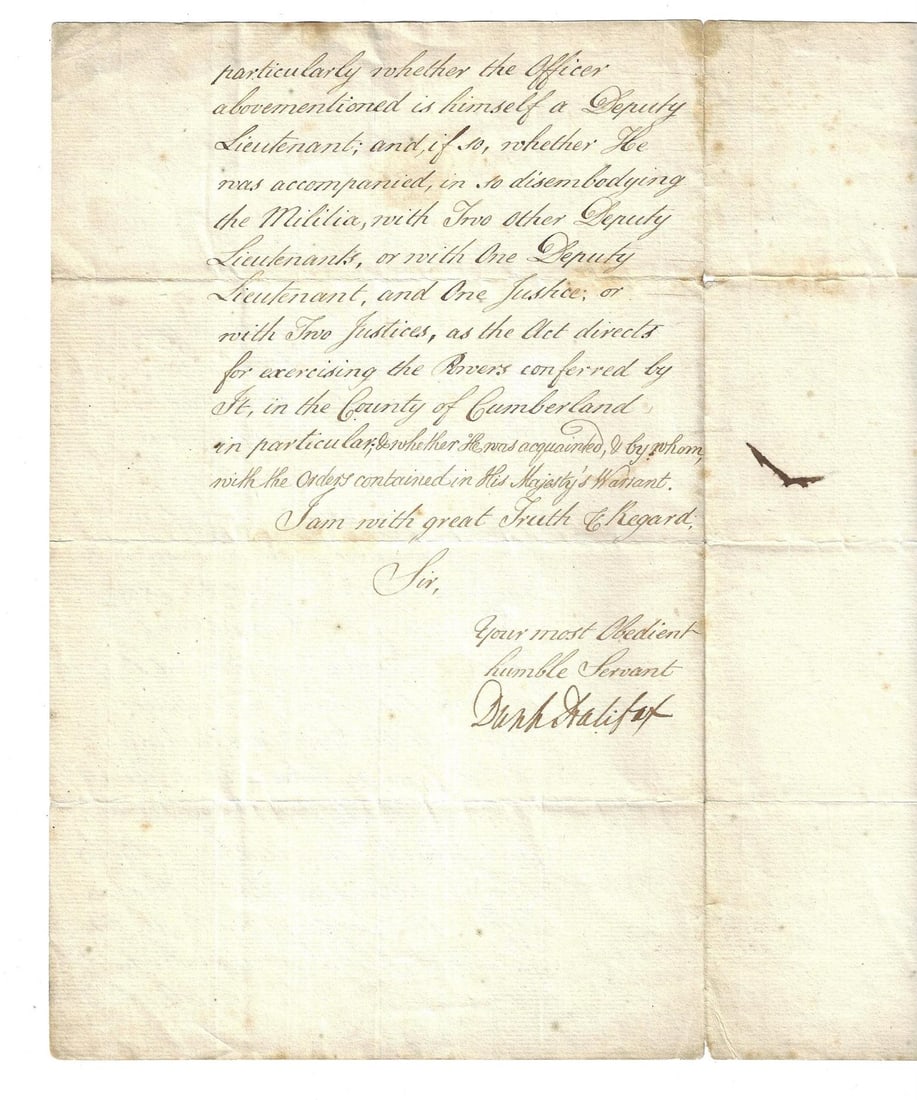 particularly whether the Officer
abovementioned is himself a Deputy
Lieutenant; and, if so, whether He
was accompanied, in so disembodying
the Militia, with Two other Deputy
Lieutenants, or with One Deputy
Lieutenant, and One Justice; or
with Two Justices, as the Act directs
for exercising the Powers conferred by
It, in the County of Cumberland
in particular; & whether He was acquainted, & by whom,
with the Orders contained in His Majesty's Warrant.
I am with great Truth & Regard,
Sir,
Your most Obedient
humble Servant
Dunk Halifax